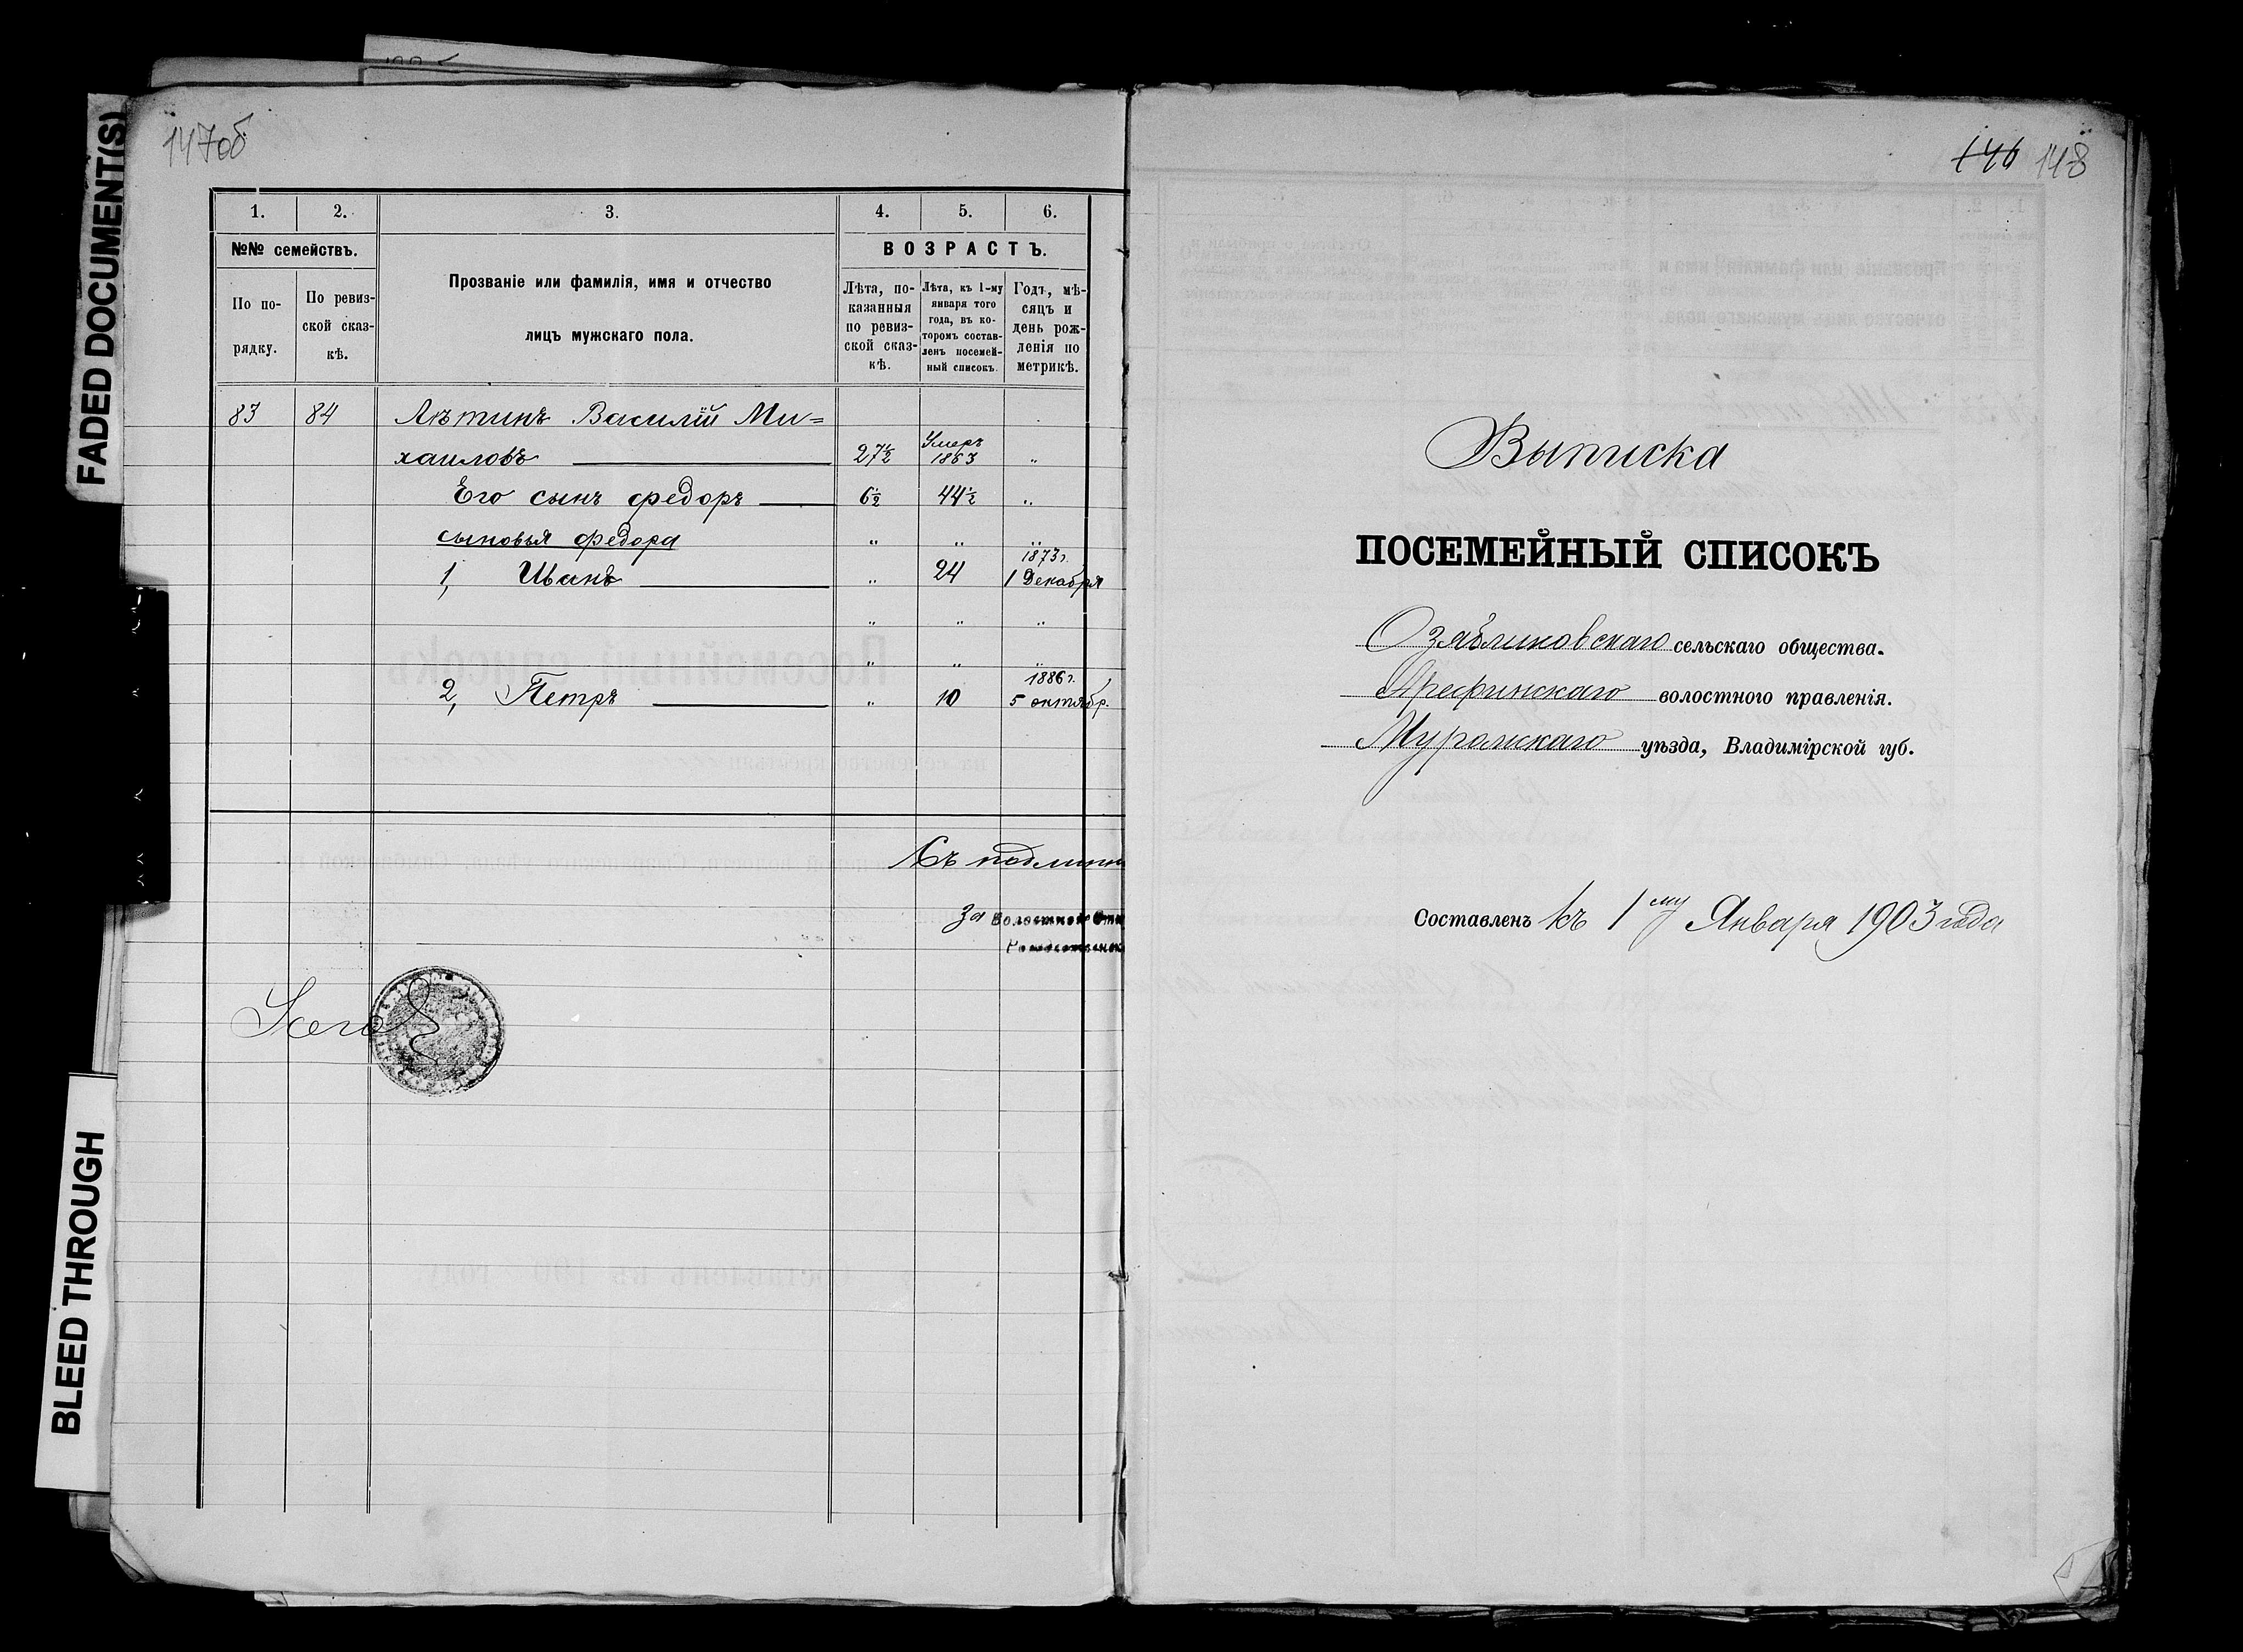 FADED DOCUMENT(S)
BLEED THROUGH
147об
1. 2. 3. 4. 5. 6.
№№ семействъ.
По по-
рядку.
По ревиз-
ской сказ-
кѣ.
Прозваніе или фамилія, имя и отчество
лицъ мужскаго пола.
ВОЗРАСТЪ.
Лѣта, по-
казанныя
по ревиз-
ской сказ-
кѣ.
Лѣта, къ 1-му
января того
года, въ ко-
торомъ состав-
ленъ посемей-
ный списокъ.
Годъ, мѣ-
сяцъ и
день рож-
денія по
метрикѣ.
83 84 Лѣтинъ Василій Ми=
хаиловъ 27½ Умеръ 1863 "
Его сынъ федоръ 6½ 44½ "
сыновья федора " " "
1, Иванъ " 24 1873 г. 1 Декабря
" " "
" " "
2, Петръ " 10 1886 г. 5 октябр.
Съ подлинн
За Волостной
146 148
Выписка
ПОСЕМЕЙНЫЙ СПИСОКЪ
Озябликовскаго сельскаго общества.
Арефинскаго волостного правленія.
Муромскаго уѣзда, Владимірской губ.
Составленъ къ 1му Января 1903 года